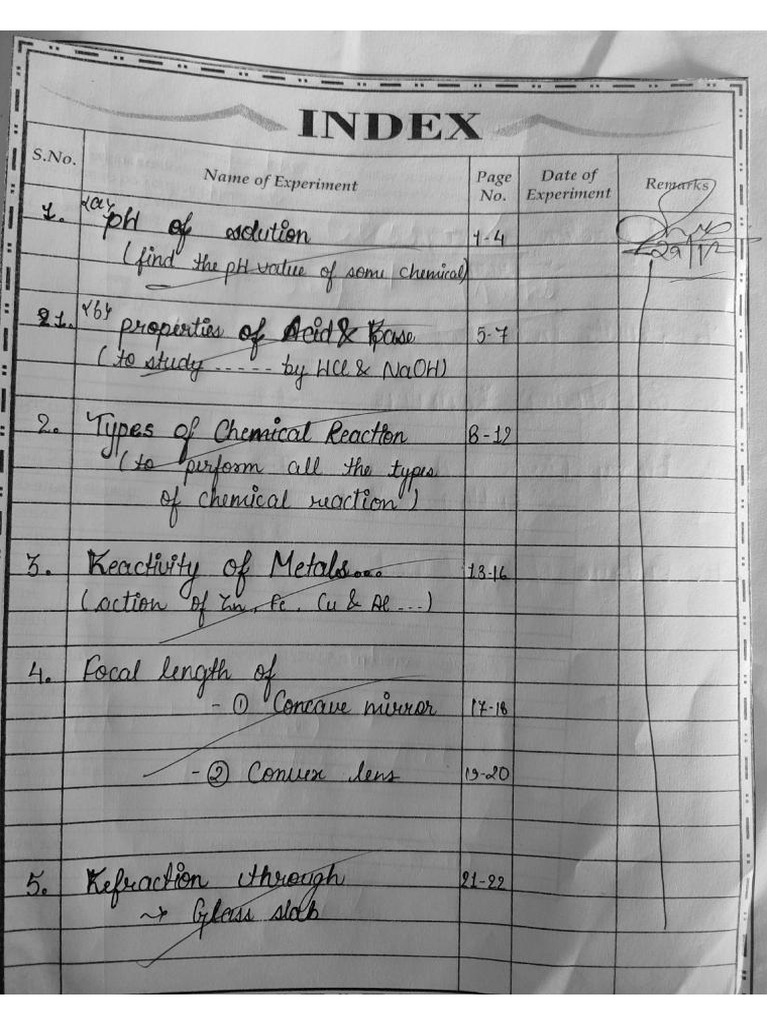 INDEX
S.No. Name of Experiment Page No. Date of Experiment Remarks
1. (a) pH of solution 1-4
(find the pH value of some chemical) 29/1/
1. (b) properties of Acid & Base 5-7
(to study ----- by HCl & NaOH)
2. Types of Chemical Reaction 8-12
(to perform all the types
of chemical reaction)
3. Reactivity of Metals... 13-16
(action of Zn, Fe, Cu & Al ...)
4. Focal length of
- ① Concave mirror 17-18
- ② Convex lens 19-20
5. Refraction through 21-22
→ Glass slab